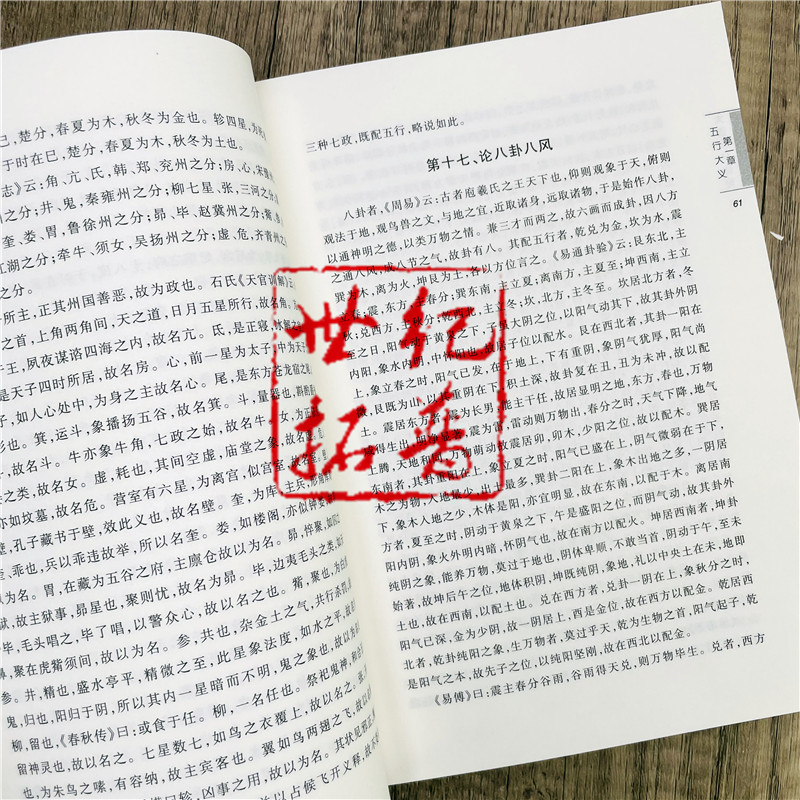 巳,楚分,春夏为木,秋冬为金也。轸四星,为
于时在巳,楚分,春夏为木,秋冬为土也。
志》云:角、亢、氐,韩、郑、兖州之分;房、心,宋
分;井、鬼,秦雍州之分;柳七星、张,三河之分
奎、娄、胃,鲁徐州之分;昴、毕、赵冀州之分;觜、参
江湖之分;牵牛、须女,吴扬州之分;虚、危,齐青州之
之分。
所主,正其州国善恶,故为政也。石氏《天官训解》云
之首,上角两角间,天之道,日月五星所行,故名角。亢
王,夙夜谋谘四海之内,故名亢。氐,是正寝,
是天子四时所居,故名房。心,前一星为太子
子,如人心处中,为身之主故名心。尾,是东方苍龙宿之
形也。箕,运斗,象播扬五谷,故名箕。斗,量器也,斟酌
,故名斗。牛亦象牛角,七政之始,故名牛。女,为
之类,故名女。虚,耗也,其间空虚,庙堂之象,故名
如坟墓,故名危。营室有六星,为离宫,似宫室,故名
壁,孔子藏书于壁,效此义也,故名壁。奎,为库,主兵,
奎,乖也,兵以乖违故举,所以名奎。娄,如楼阁,亦似钟
为名。胃,在藏为五谷之府,主廪仓故以为名。昴,悴聚,如
狱,故主狱事,昴星也,聚则忧,故名为昴。毕,边夷毛头之类,
毕,毛头唱之,毕了唱,以警众心,故以名之。觜,聚也,为
鼻,聚在虎觜须间,故以为名。参,共也,杂金土之气,共行杀罚,
参。井,精也,盛水亭平,精微之至,此星象法度,如水之平,故以
鬼,归也,阳归于阴,所以其内一星暗而不明,鬼之象也,故以为名
柳,留也,《春秋传》曰:或食于任。柳,一名任也。祭祀鬼神,和合
留神灵也,故以名之。七星数七,如鸟之衣覆上,故以名之。张
也,为朱鸟之嗉,有容纳,故主宾客也。翼如鸟两翅之飞,故以
凶事之用,故以为名。其状见邪正
以占候飞开义释,故
三种七政,既配五行,略说如此。
第十七、论八卦八风
八卦者,《周易》云:古者庖羲氏之王天下也,仰则观象于天,俯则
观法于地,观鸟兽之文,与地之宜,近取诸身,远取诸物,于是始作八卦,
以通神明之德,以类万物之情。兼三才而两之,故六画而成卦,因八方
之通八风,成八节之气,故卦有八。其配五行者,乾兑为金,坎为水,震
巽为木,离为火,坤艮为土,各以方位言之。《易通卦验》云:艮东北,主
立春;震,东方,主春分;巽东南,主立夏;离南方,主夏至;坤西南,主立
秋;兑西方,主秋分;乾西北,主立冬;坎,北方,主冬至。坎居北方者,冬
至之日,阳气动于黄泉之下,子是大阴之位,以阳气动其下,故其卦外阴
内阳,象水内明,中怀阳也,故居子位以配水。艮在西北者,其卦一阳
上,象立春之时,阳气已发,在于地上,下有重阴,象阴气犹厚,阳气尚
微,艮既为山,以其重阴在下,积土深,故卦复在丑,丑为未冲,故以配
土。震居东方者,震为长男,能主干任,故居显明之地,东方,春也,万物
咸得生出,明净显著,震为雷,雷动则万物出,春分之时,天气下降,地气
上腾,天地和同,万物萌动,故震居卯,卯木,少阳之位,故以配木。巽居
东南者,其卦重阳在上,象立夏之时,阳气已盛在上,阴气微弱在于下,
木之为物,入地最少,出土最多,巽卦二阳在上,象木出地之多,一阴居
下,象木入地之少,木体是阳,亦宜明显,故在东南,以配于木。离居南
方者,夏至之时,阴动于黄泉之下,午是盛阳之位,而阴气动,故其卦外
阳内阴,象火外明内暗,怀阴气也,故在南方以配火。坤居西南者,坤卦
纯阴之象,能养万物,莫过于地也,阴体卑顺,不敢当首,阴动于午,至未
始著,故坤后午之位,地体积阴,坤既纯阴,象地,礼以中央土在未,地即
土也,故在西南,以配土也。兑在西方者,兑卦一阴在上,象秋分之时,
阳气已深,金为少阴,故一阴居上,酉是金位,故在西方以配金。乾居西
北者,乾卦纯阳之象,生万物者,莫过乎天,乾为生物之首,阳气起子,乾
是阳气之本,故先子之位,以纯阳坚刚,故在西北以配金。兑者,西方
《易傅》曰:震主春分谷雨,谷雨得天兑,则万物毕生。
第一章
五行大义
61
世纪
拓普